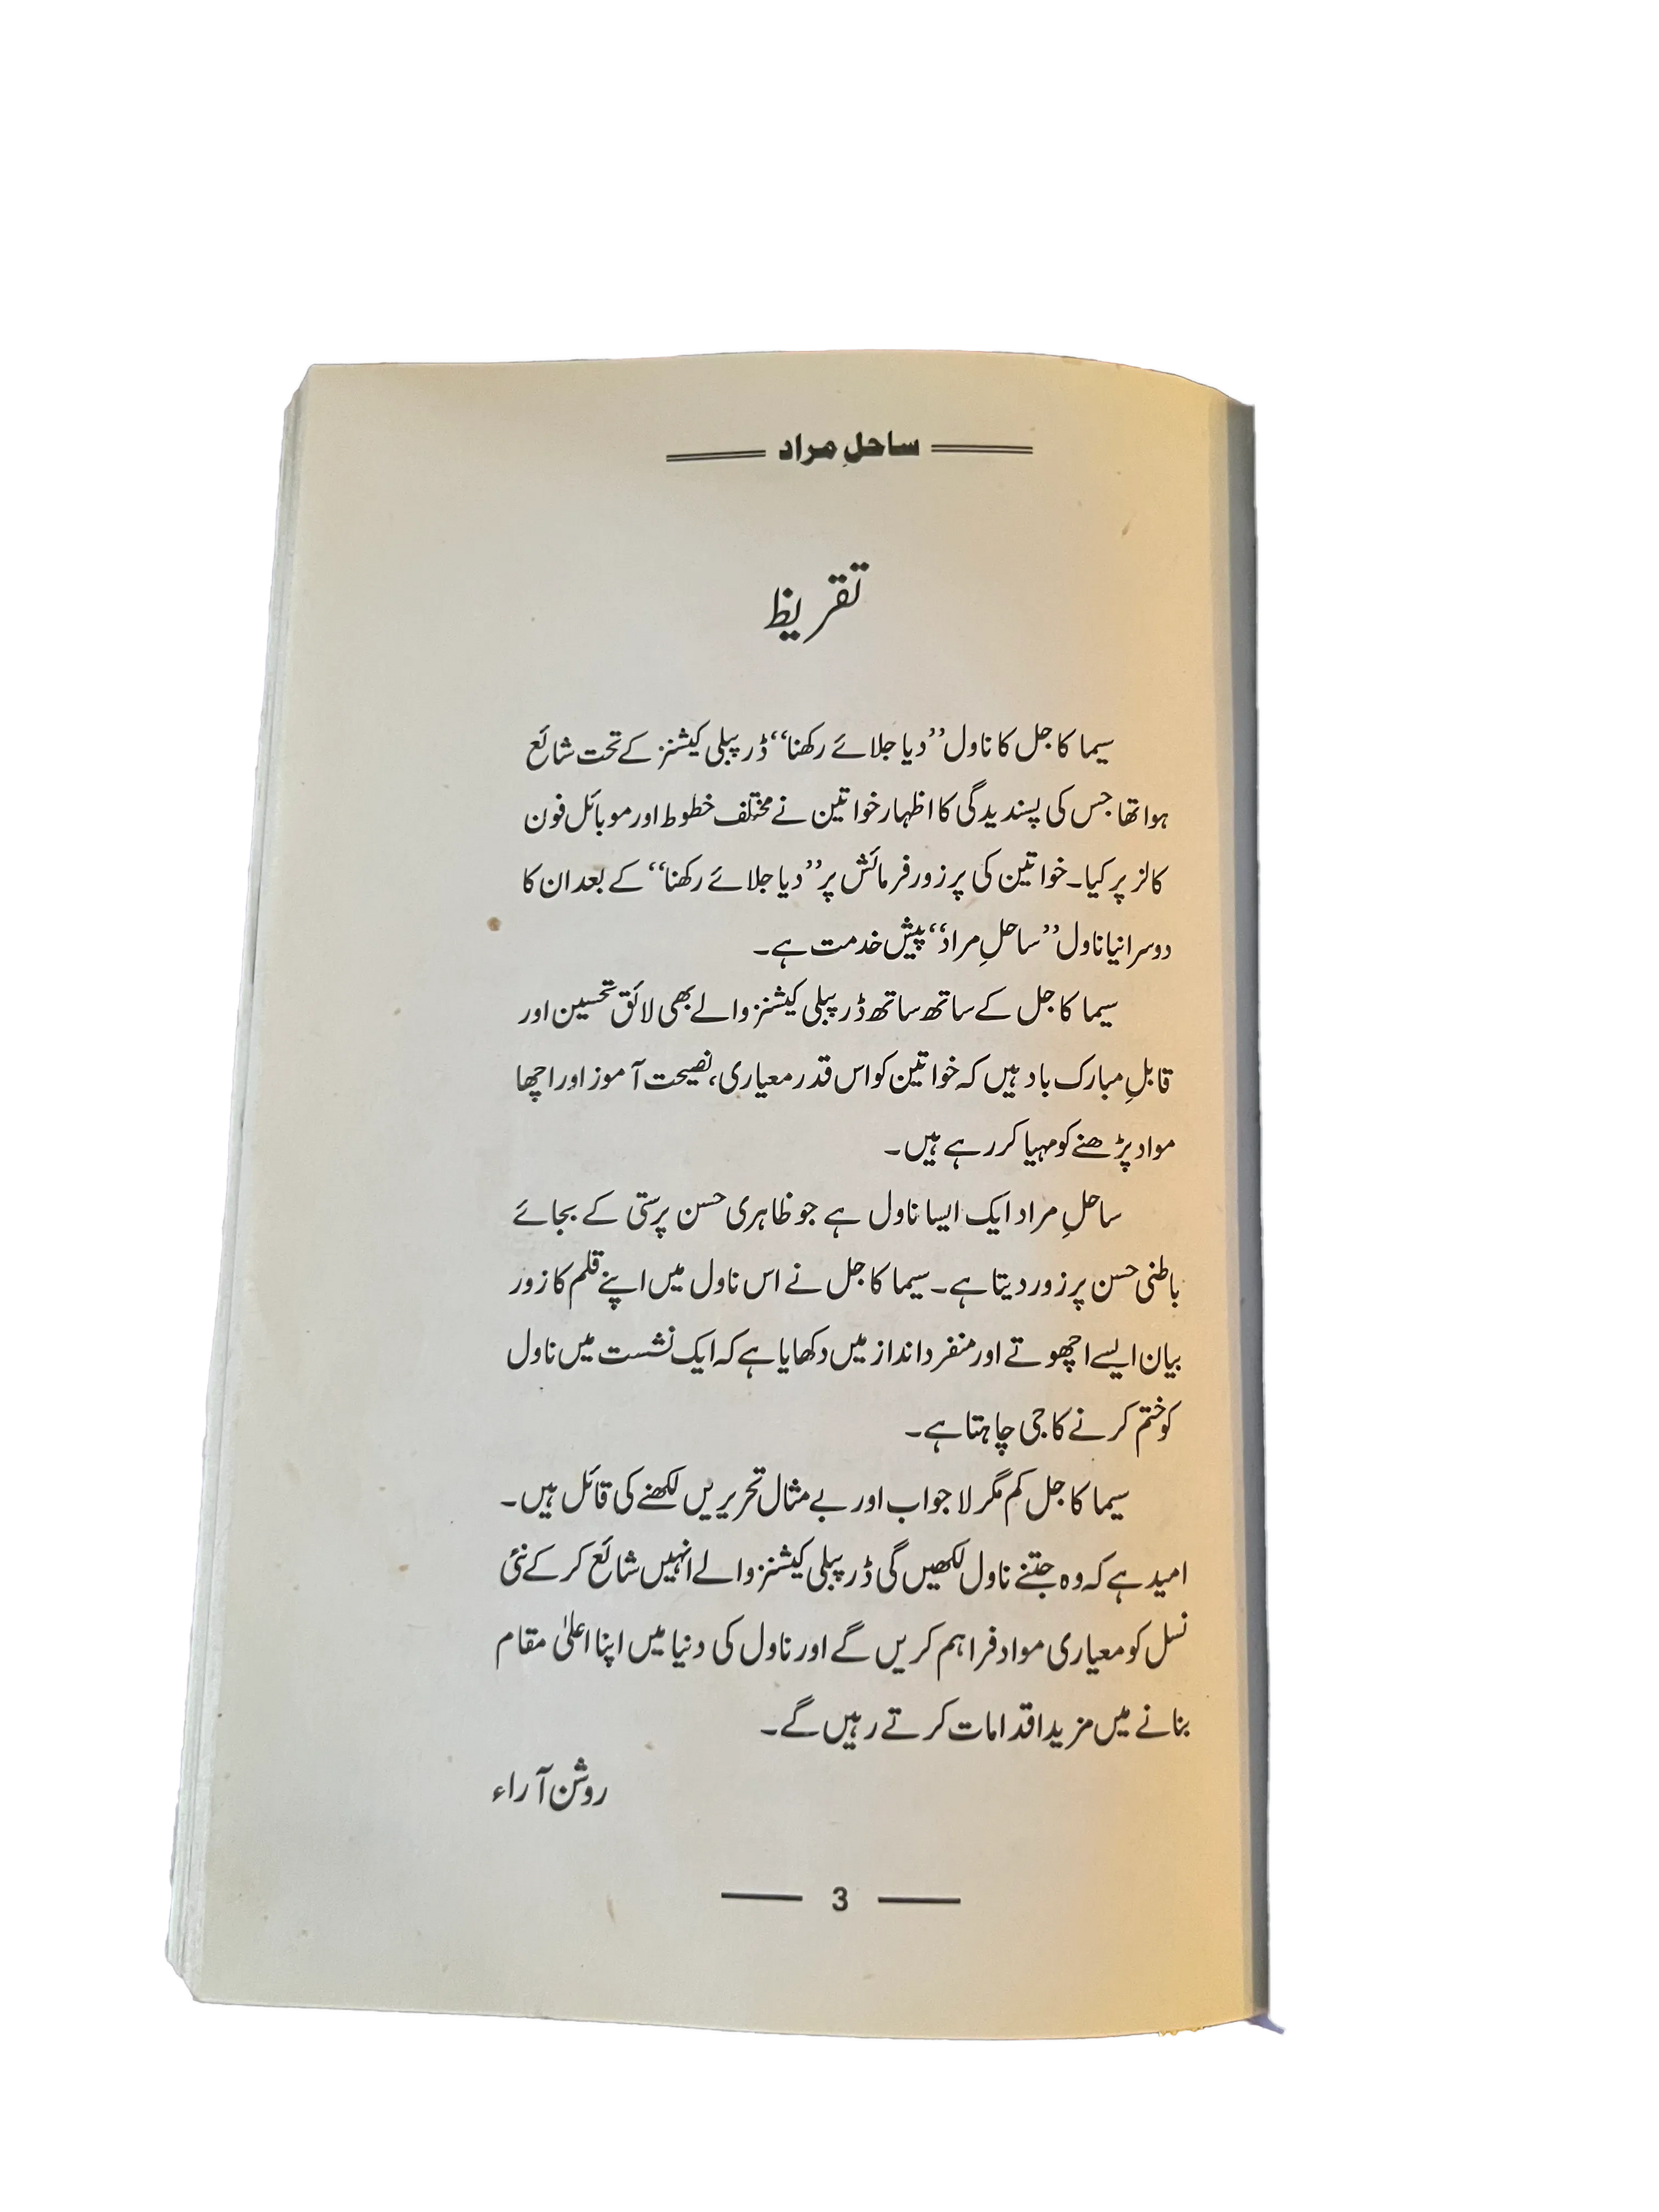 ساحلِ مراد
تقریظ
سیما کاجل کا ناول ’’دیا جلائے رکھنا‘‘ ڈر پبلی کیشنز کے تحت شائع
ہوا تھا جس کی پسندیدگی کا اظہار خواتین نے مختلف خطوط اور موبائل فون
کالز پر کیا۔ خواتین کی پرزور فرمائش پر ’’دیا جلائے رکھنا‘‘ کے بعد ان کا
دوسرا نیا ناول ’’ساحلِ مراد‘‘ پیش خدمت ہے۔
سیما کاجل کے ساتھ ساتھ ڈر پبلی کیشنز والے بھی لائق تحسین اور
قابلِ مبارک باد ہیں کہ خواتین کو اس قدر معیاری، نصیحت آموز اور اچھا
مواد پڑھنے کو مہیا کر رہے ہیں۔
ساحلِ مراد ایک ایسا ناول ہے جو ظاہری حسن پرستی کے بجائے
باطنی حسن پر زور دیتا ہے۔ سیما کاجل نے اس ناول میں اپنے قلم کا زور
بیان ایسے اچھوتے اور منفرد انداز میں دکھایا ہے کہ ایک نشست میں ناول
کو ختم کرنے کا جی چاہتا ہے۔
سیما کاجل کم مگر لاجواب اور بے مثال تحریریں لکھنے کی قائل ہیں۔
امید ہے کہ وہ جتنے ناول لکھیں گی ڈر پبلی کیشنز والے انہیں شائع کر کے نئی
نسل کو معیاری مواد فراہم کریں گے اور ناول کی دنیا میں اپنا اعلیٰ مقام
بنانے میں مزید اقدامات کرتے رہیں گے۔
روشن آراء
3